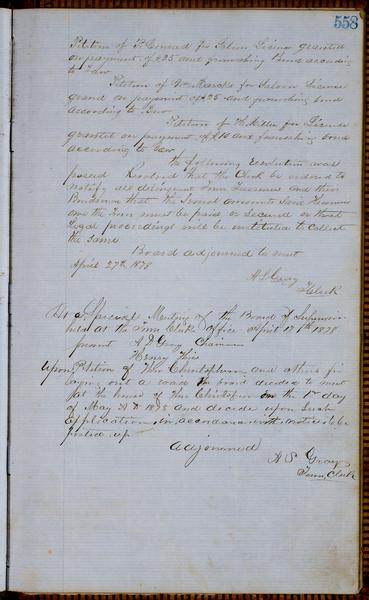 558
Petition of P. Conrad for Saloon License granted
on payment of $25 and furnishing Bond according
to Law
Petition of Wm for Saloon License
grand on payment of $25 and furnishing bond
according to Law
Petition of H for License
granted on payment of $10 and furnishing bond
according to Law
the following resolution was
passed Resolved that the Clerk be ordered to
notify all delinquent Town Treasurers and their
Bondsmen that the amounts
the Town must be paid or Secured or that
Legal proceedings will be instituted to Collect
the Same
Board adjourned to meet
April 27th 1878
Clerk
At a Special Meeting of the Board of Supervisors
held at the Town Clerk office April 17th 1878
present A Gray Chairman
Henry
Upon Petition of Christophersen and others for
laying out a road the board decided to meet
at the house of on the 1st day
of May AD 1878 and decide upon Such
Application in accordance with notice to be
posted up
adjourned
A S Gray
Town Clerk